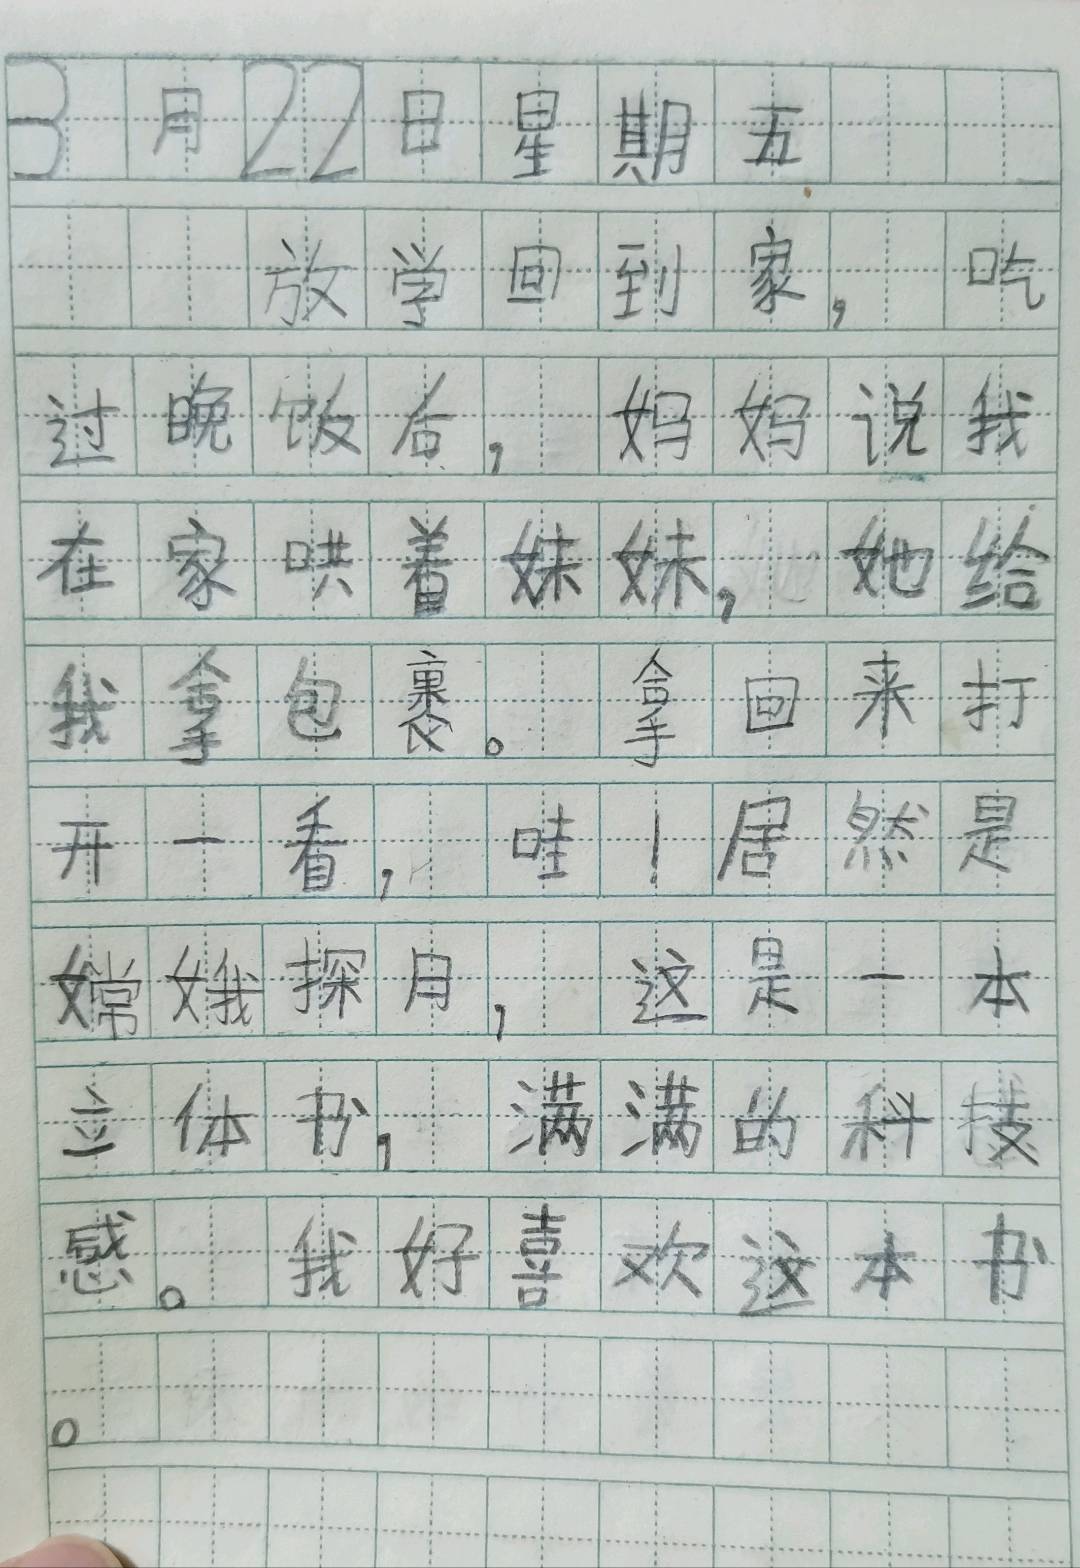 3月22日星期五
放学回到家，吃
过晚饭后，妈妈说我
在家哄着妹妹，她给
我拿包裹。拿回来打
开一看，哇！居然是
嫦娥探月，这是一本
立体书，满满的科技
感。我好喜欢这本书
。